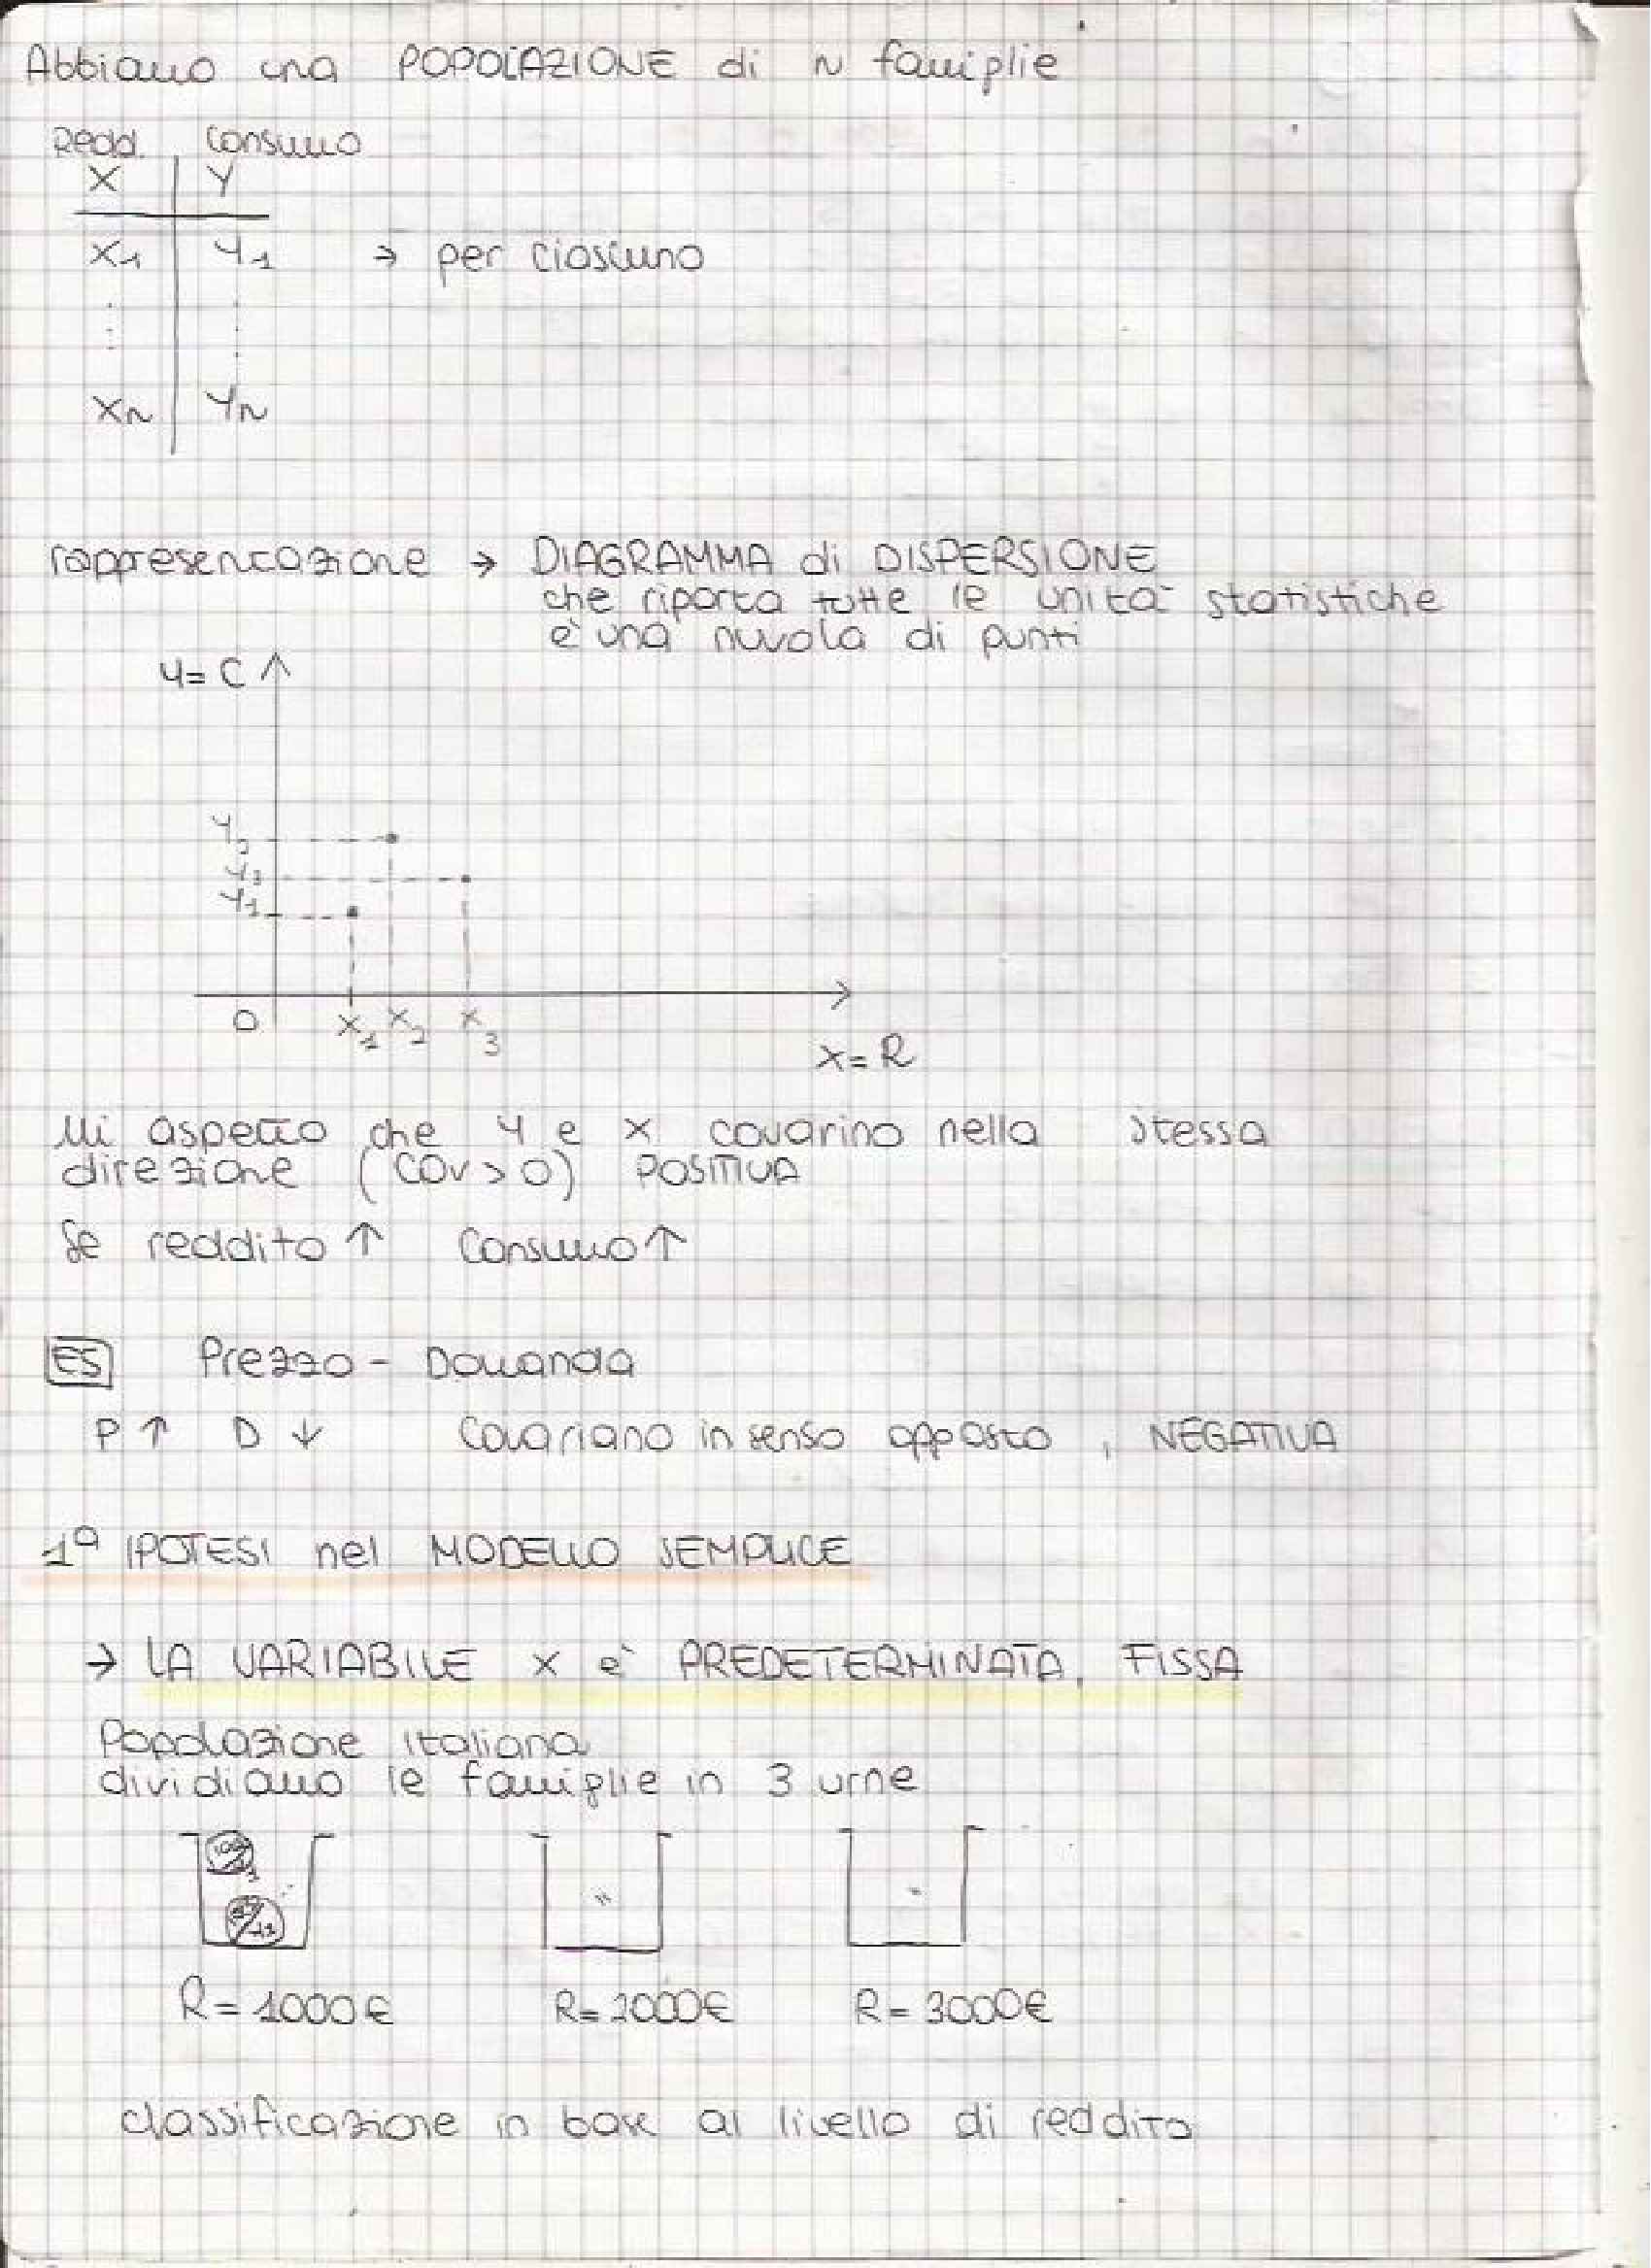 Abbiamo una POPOLAZIONE di N famiglie
Redd. Consumo
X Y
X1 Y1 → per ciascuno
XN YN
rappresentazione → DIAGRAMMA di DISPERSIONE
che riporta tutte le unità statistiche
è una nuvola di punti
Y = C
Y2
Y3
Y1
0 X1 X2 X3
X = R
Mi aspetto che Y e X covarino nella stessa
direzione (COV > 0) POSITIVA
Se reddito ↑ Consumo ↑
ES Prezzo - Domanda
P ↑ D ↓ Covariano in senso opposto, NEGATIVA
1ª IPOTESI nel MODELLO SEMPLICE
→ LA VARIABILE X è PREDETERMINATA, FISSA
Popolazione italiana
dividiamo le famiglie in 3 urne
" "
R = 1000€ R = 2000€ R = 3000€
classificazione in base al livello di reddito